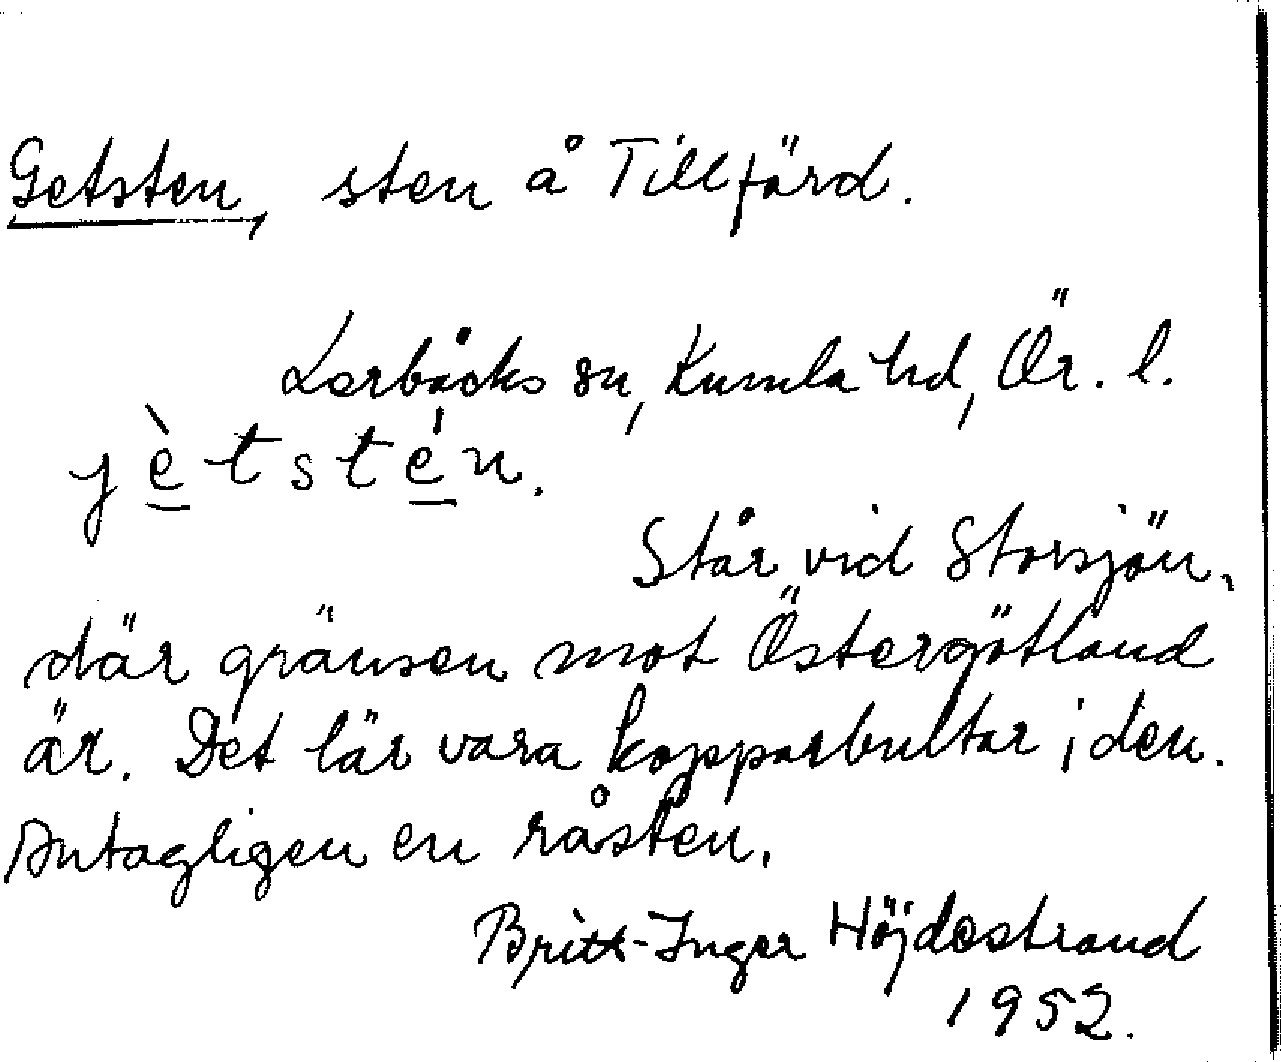 Getsten, sten å Tillfärd.
Lerbäcks sn, Kumla hd, Ör. l.
jè̱tsté̱n.
Står vid Storsjön,
där gränsen mot Östergötland
är. Det lär vara kopparbultar i den.
Antagligen en råsten.
Britt-Inger Höjdestrand
1952.